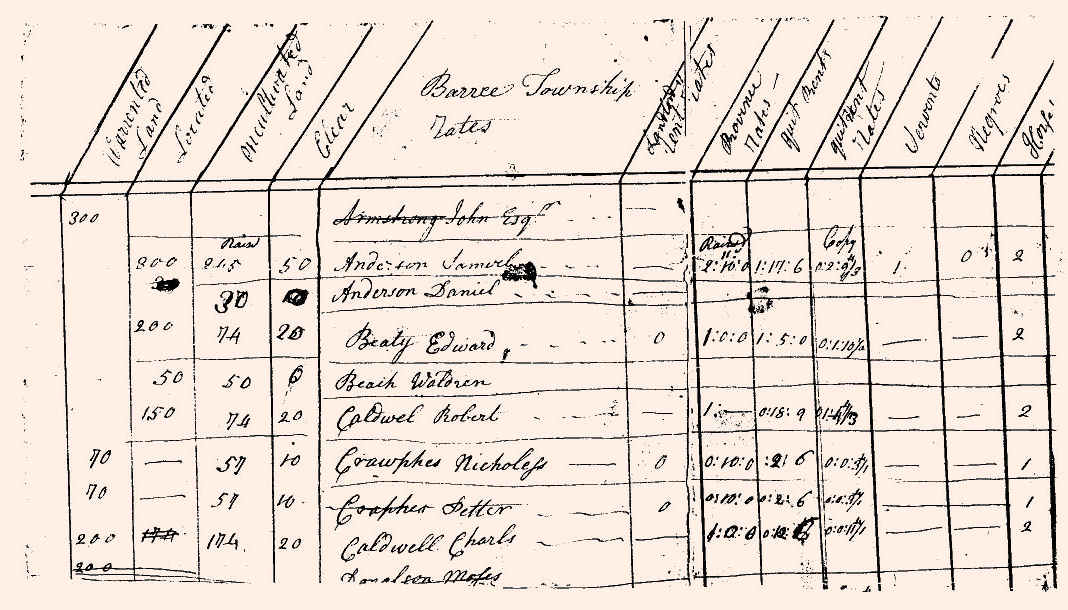 Warrented Land Located uncultivated Land Clear Barree Township Rates Province Rates quit Rents quit Rent Rates Servents Negroes Horse
300 Armstrong John Esqr
Rais Raised Copy
200 215 50 Anderson Samuel 2:10:0 1:17:6 1 0 2
30 Anderson Daniel
200 74 20 Beaty Edward 0 1:0:0 1:5:0 — — 2
50 50 6 Beaih Waldren
150 74 20 Caldwel Robert — 1:— 0:18:9 — — 2
70 — 57 10 Crawphes Nicholess — 0 0:10:0 :2:6 — — 1
70 — 57 10 Craphes Petter 0 0:10:0 0:2:6 — 1
200 174 174 20 Caldwell Charls — — 2
200 Donalson Moses